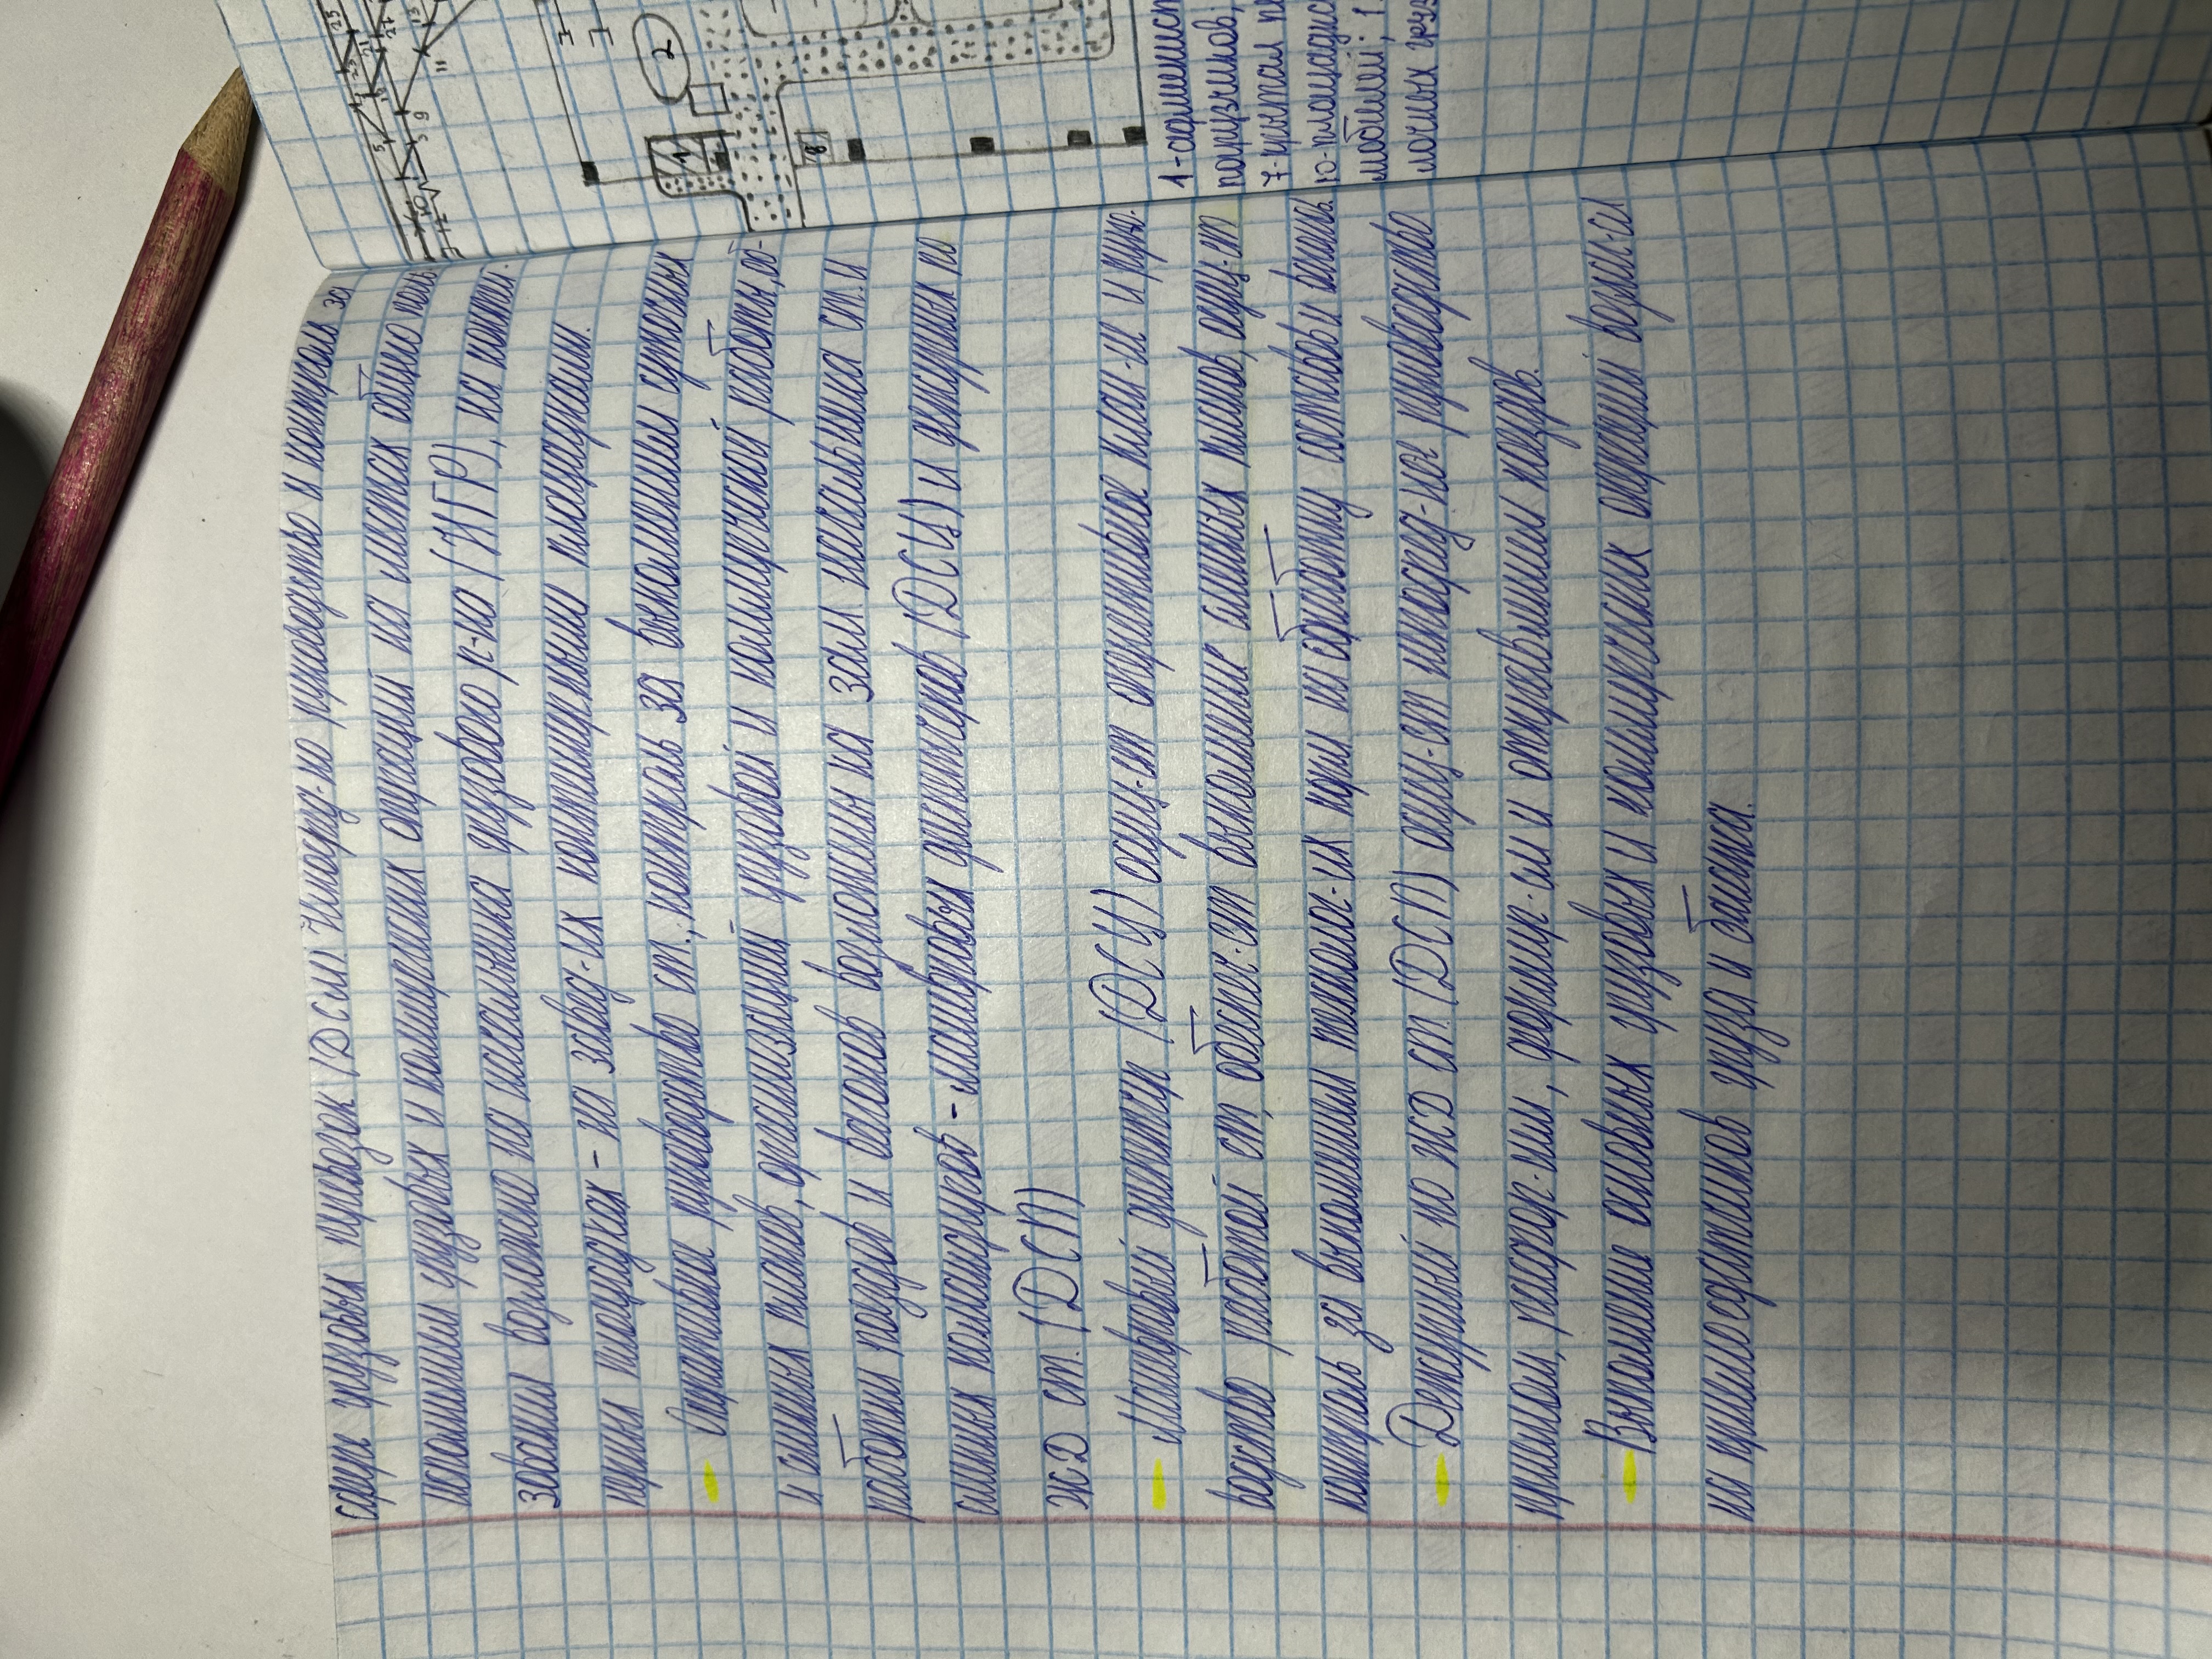 сфере грузовых перевозок (ДСМ) Непосред-но руководство и контроль за
исполнением грузовых и коммерческих операций на местах общего поль
зования возложено на начальника грузового р-на (НГР), на контей-
нерных площадках - на завед-их контейнерными площадками.
Оперативное руководство ст., контроль за выполнением суточных
и сменных планов, организацией грузовой и коммерческой работы, об-
работки поездов и вагонов возложены на зам начальника ст. и
сменных командиров - маневровых диспетчеров (ДСЦ) и дежурных по
ЖД ст. (ДСП)
Маневровый диспетчер (ДСЦ) осущ-ет оперативное план-ие и руко-
водство работой ст, обеспеч-ет выполнение сменных планов, осущ-ет
контроль за выполнением технолог-их норм на обработку составов и вагонов.
Дежурный по ЖД ст. (ДСП) осущ-ет непосред-ное руководство
приемом, расфор-нием, формир-ем и отправлением поездов.
Выполнение основных грузовых и коммерческих операций возлаг-ся
на приемосдатчиков груза и багажа.
1
2
8
1-
7-крытая
10-площадка